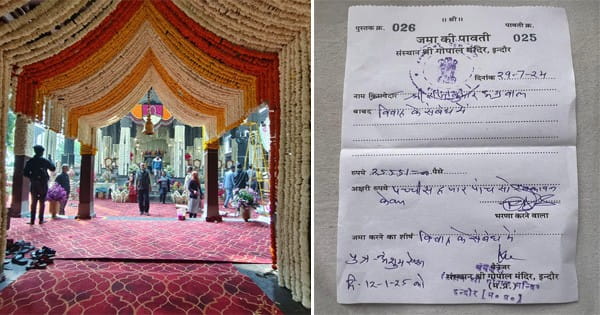 ॥ श्री ॥
पुस्तक क्र. 026 पावती क्र. 025
जमा की पावती
संस्थान श्री गोपाल मंदिर, इन्दौर
दिनांक 29-7-24
नाम श्री अग्रवाल
बाबद विवाह के संबंध में
रुपये 25551 पैसे
अक्षरी रुपये पच्चीस हजार पांच सो
केवल
भरणा करने वाला
जमा करने का शीर्ष विवाह के संबंध में
पुत्र
दि-12-1-25 को
संस्थान श्री गोपाल मंदिर, इन्दौर
इन्दौर (म.प्र.)